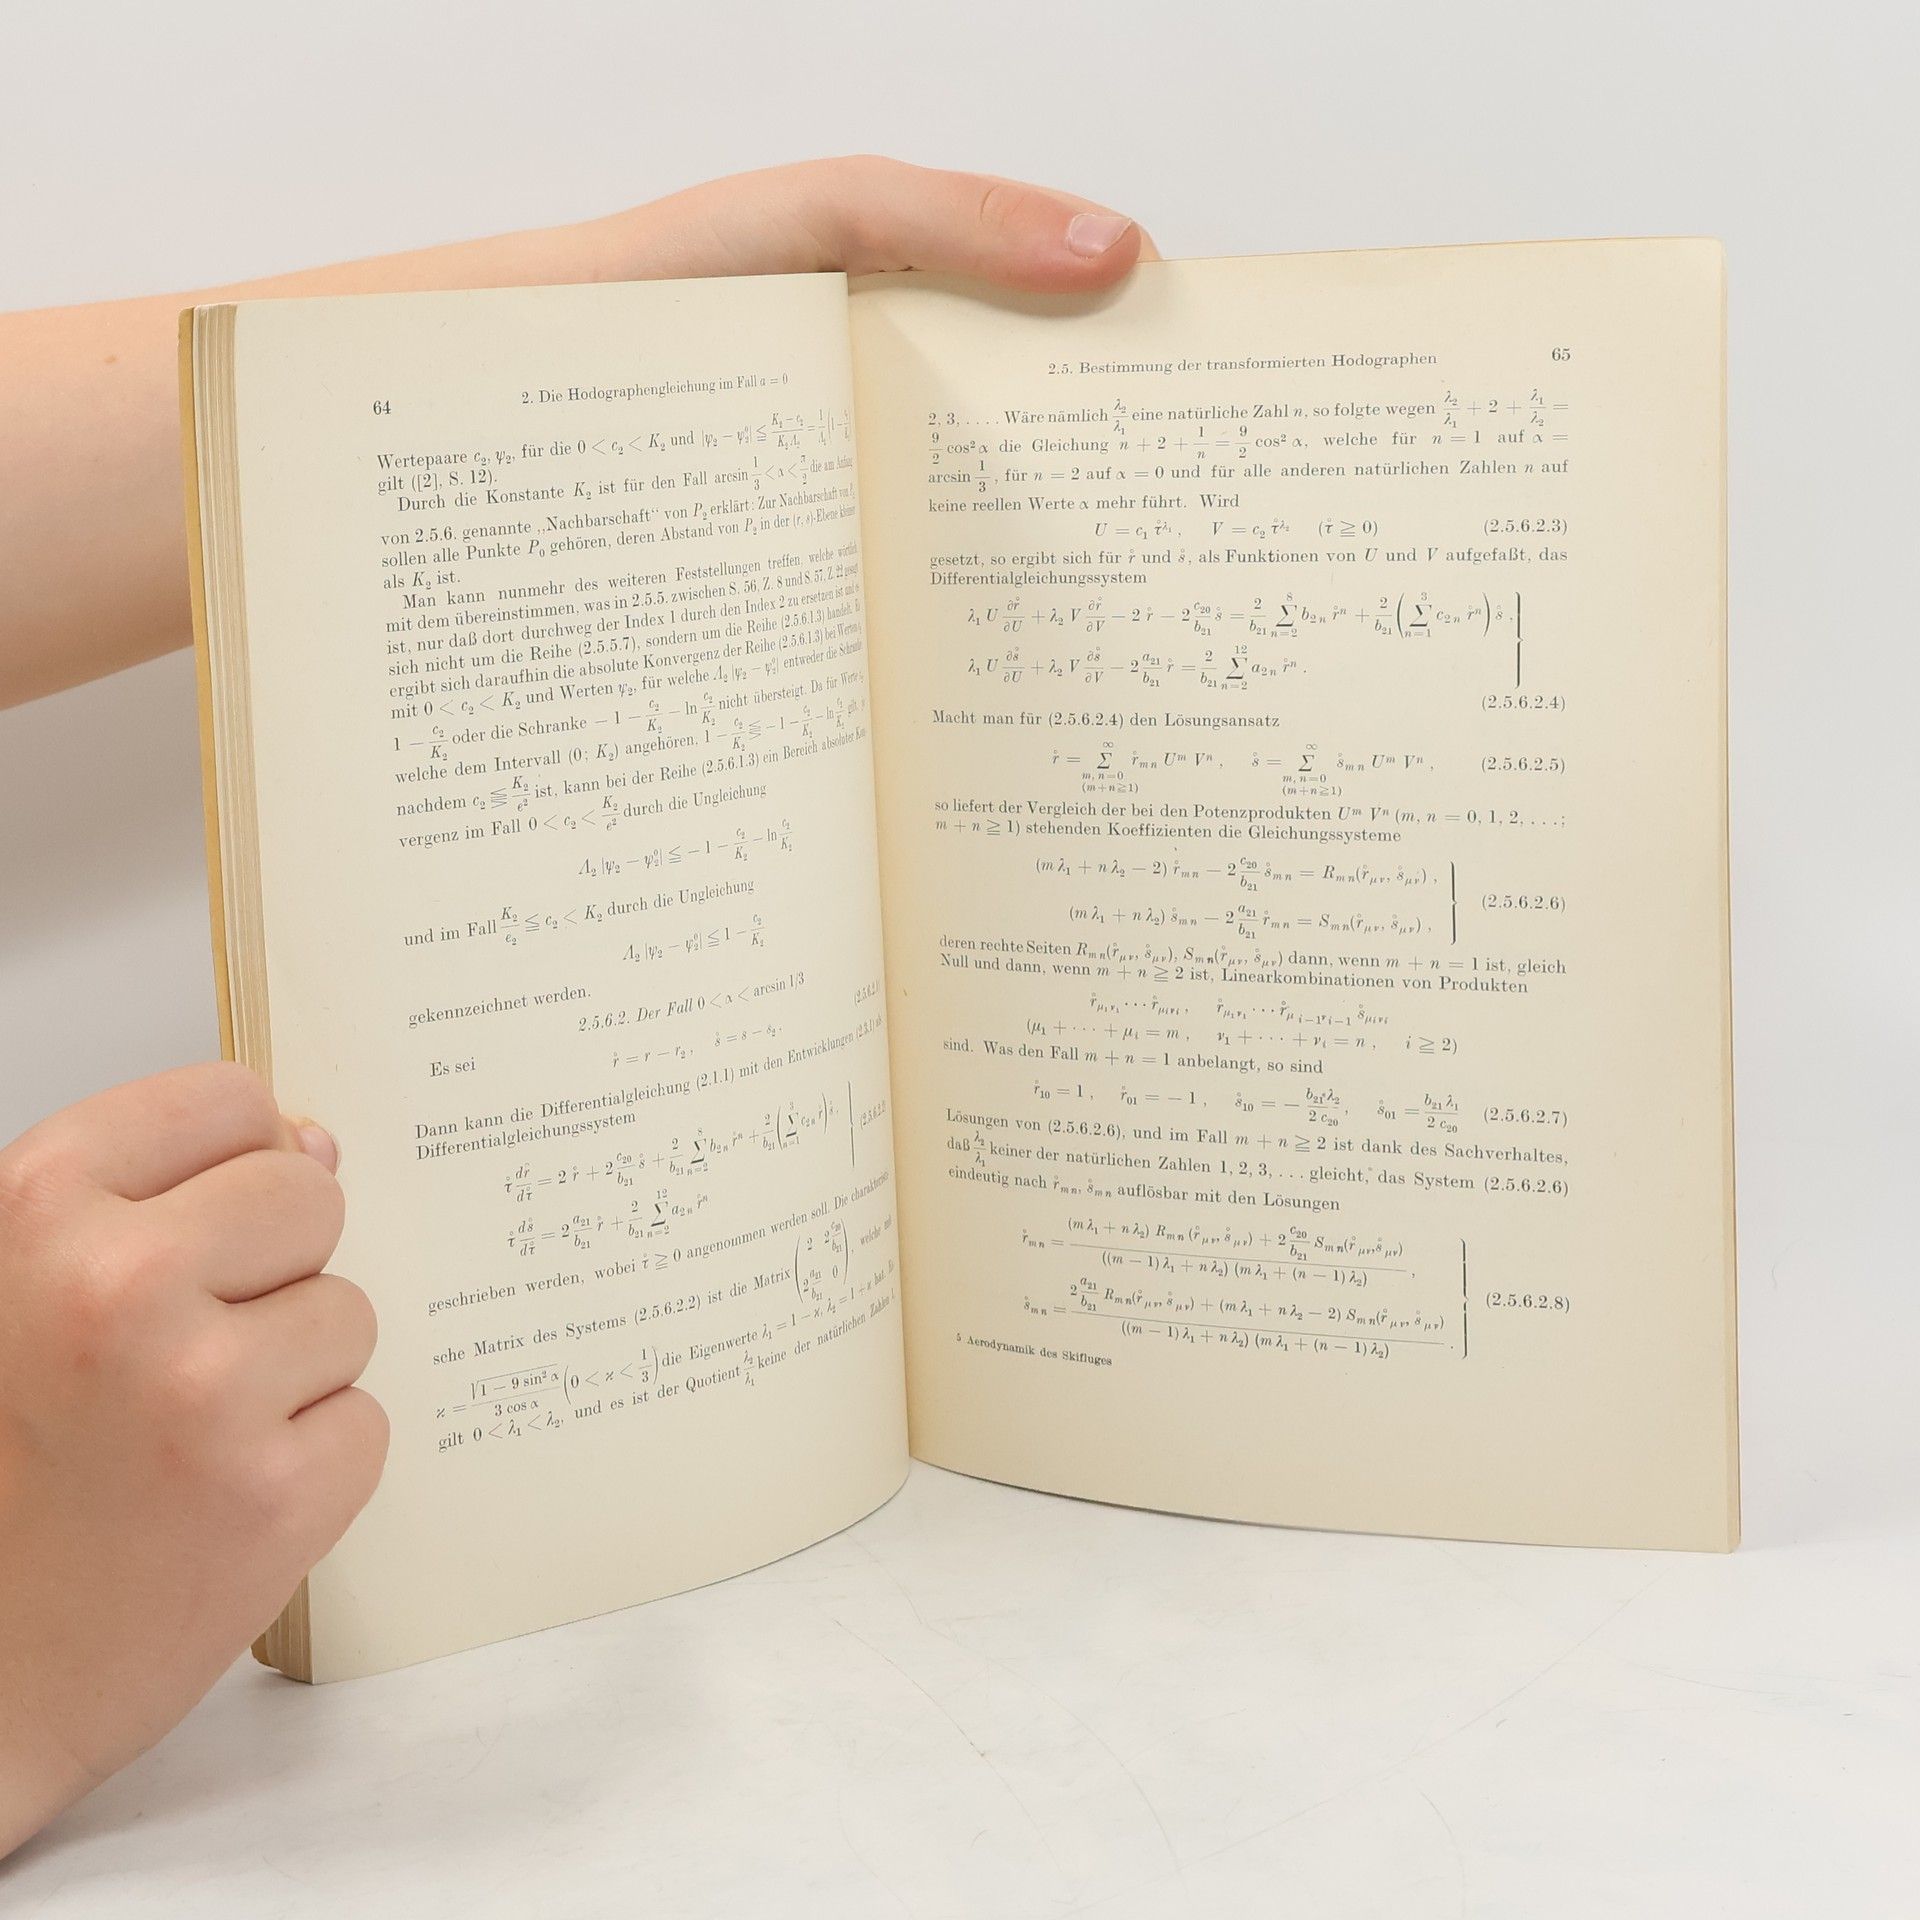 64
2. Die Hodographengleichung im Fall a = 0
Wertepaare c₂, ψ₂, für die 0 < c₂ < K₂ und |ψ₂ − ψ₂⁰| ≦ (K₂ − c₂)/(K₂ Λ₂) = 1/Λ₂ (1 −
gilt ([2], S. 12).
Durch die Konstante K₂ ist für den Fall arcsin 1/3 < α < π/2 die am Anfang
von 2.5.6. genannte „Nachbarschaft“ von P₂ erklärt: Zur Nachbarschaft von P₂
sollen alle Punkte P₀ gehören, deren Abstand von P₂ in der (r, s)-Ebene kleiner
als K₂ ist.
Man kann nunmehr des weiteren Feststellungen treffen, welche wörtlich
mit dem übereinstimmen, was in 2.5.5. zwischen S. 56, Z. 8 und S. 57, Z. 22 gesagt
ist, nur daß dort durchweg der Index 1 durch den Index 2 zu ersetzen ist und es
sich nicht um die Reihe (2.5.5.7), sondern um die Reihe (2.5.6.1.3) handelt. Es
ergibt sich daraufhin die absolute Konvergenz der Reihe (2.5.6.1.3) bei Werten c₂
mit 0 < c₂ < K₂ und Werten ψ₂, für welche Λ₂ |ψ₂ − ψ₂⁰| entweder die Schranke
1 − c₂/K₂ oder die Schranke − 1 − c₂/K₂ − ln c₂/K₂ nicht übersteigt. Da für Werte
welche dem Intervall (0; K₂) angehören, 1 − c₂/K₂ ⪋ − 1 − c₂/K₂ − ln c₂/K₂ gilt, je
nachdem c₂ ⪋ K₂/e² ist, kann bei der Reihe (2.5.6.1.3) ein Bereich absoluter Kon-
vergenz im Fall 0 < c₂ < K₂/e² durch die Ungleichung
Λ₂ |ψ₂ − ψ₂⁰| ≦ − 1 − c₂/K₂ − ln c₂/K₂
und im Fall K₂/e₂ ≦ c₂ < K₂ durch die Ungleichung
Λ₂ |ψ₂ − ψ₂⁰| ≦ 1 − c₂/K₂
gekennzeichnet werden.
2.5.6.2. Der Fall 0 < α < arcsin 1/3
Es sei r̊ = r − r₂, s̊ = s − s₂. (2.5.6.2.1)
Dann kann die Differentialgleichung (2.1.1) mit den Entwicklungen (2.3.1) als
Differentialgleichungssystem
τ̊ dr̊/dτ̊ = 2 r̊ + 2 c₂₀/b₂₁ s̊ + 2/b₂₁ Σₙ₌₂⁸ b₂ₙ r̊ⁿ + 2/b₂₁ (Σₙ₌₁³ c₂ₙ r̊ⁿ) s̊,
τ̊ ds̊/dτ̊ = 2 a₂₁/b₂₁ r̊ + 2/b₂₁ Σₙ₌₂¹² a₂ₙ r̊ⁿ (2.5.6.2.2)
geschrieben werden, wobei τ̊ ≧ 0 angenommen werden soll. Die charakteristi-
sche Matrix des Systems (2.5.6.2.2) ist die Matrix (2 2 c₂₀/b₂₁; 2 a₂₁/b₂₁ 0), welche mit
ϰ = √(1 − 9 sin² α)/(3 cos α) (0 < ϰ < 1/3) die Eigenwerte λ₁ = 1 − ϰ, λ₂ = 1 + ϰ hat. Es
gilt 0 < λ₁ < λ₂, und es ist der Quotient λ₂/λ₁ keine der natürlichen Zahlen 1,
2.5. Bestimmung der transformierten Hodographen
65
2, 3, . . . . Wäre nämlich λ₂/λ₁ eine natürliche Zahl n, so folgte wegen λ₂/λ₁ + 2 + λ₁/λ₂ =
9/2 cos² α die Gleichung n + 2 + 1/n = 9/2 cos² α, welche für n = 1 auf α =
arcsin 1/3, für n = 2 auf α = 0 und für alle anderen natürlichen Zahlen n auf
keine reellen Werte α mehr führt. Wird
U = c₁ τ̊^λ₁, V = c₂ τ̊^λ₂ (τ̊ ≧ 0) (2.5.6.2.3)
gesetzt, so ergibt sich für r̊ und s̊, als Funktionen von U und V aufgefaßt, das
Differentialgleichungssystem
λ₁ U ∂r̊/∂U + λ₂ V ∂r̊/∂V − 2 r̊ − 2 c₂₀/b₂₁ s̊ = 2/b₂₁ Σₙ₌₂⁸ b₂ₙ r̊ⁿ + 2/b₂₁ (Σₙ₌₁³ c₂ₙ r̊ⁿ) s̊,
λ₁ U ∂s̊/∂U + λ₂ V ∂s̊/∂V − 2 a₂₁/b₂₁ r̊ = 2/b₂₁ Σₙ₌₂¹² a₂ₙ r̊ⁿ.
(2.5.6.2.4)
Macht man für (2.5.6.2.4) den Lösungsansatz
r̊ = Σ_{m, n=0 (m+n≧1)}^∞ r̊ₘₙ Uᵐ Vⁿ, s̊ = Σ_{m, n=0 (m+n≧1)}^∞ s̊ₘₙ Uᵐ Vⁿ, (2.5.6.2.5)
so liefert der Vergleich der bei den Potenzprodukten Uᵐ Vⁿ (m, n = 0, 1, 2, . . .;
m + n ≧ 1) stehenden Koeffizienten die Gleichungssysteme
(m λ₁ + n λ₂ − 2) r̊ₘₙ − 2 c₂₀/b₂₁ s̊ₘₙ = Rₘₙ(r̊_μν, s̊_μν),
(m λ₁ + n λ₂) s̊ₘₙ − 2 a₂₁/b₂₁ r̊ₘₙ = Sₘₙ(r̊_μν, s̊_μν), (2.5.6.2.6)
deren rechte Seiten Rₘₙ(r̊_μν, s̊_μν), Sₘₙ(r̊_μν, s̊_μν) dann, wenn m + n = 1 ist, gleich
Null und dann, wenn m + n ≧ 2 ist, Linearkombinationen von Produkten
r̊_μ₁ν₁ · · · r̊_μᵢνᵢ, r̊_μ₁ν₁ · · · r̊_μᵢ₋₁νᵢ₋₁ s̊_μᵢνᵢ
(μ₁ + · · · + μᵢ = m, ν₁ + · · · + νᵢ = n, i ≧ 2)
sind. Was den Fall m + n = 1 anbelangt, so sind
r̊₁₀ = 1, r̊₀₁ = − 1, s̊₁₀ = − b₂₁ λ₂/(2 c₂₀), s̊₀₁ = b₂₁ λ₁/(2 c₂₀) (2.5.6.2.7)
Lösungen von (2.5.6.2.6), und im Fall m + n ≧ 2 ist dank des Sachverhaltes,
daß λ₂/λ₁ keiner der natürlichen Zahlen 1, 2, 3, . . . gleicht, das System (2.5.6.2.6)
eindeutig nach r̊ₘₙ, s̊ₘₙ auflösbar mit den Lösungen
r̊ₘₙ = ((m λ₁ + n λ₂) Rₘₙ(r̊_μν, s̊_μν) + 2 c₂₀/b₂₁ Sₘₙ(r̊_μν, s̊_μν))/(((m − 1) λ₁ + n λ₂) (m λ₁ + (n − 1) λ₂)),
s̊ₘₙ = (2 a₂₁/b₂₁ Rₘₙ(r̊_μν, s̊_μν) + (m λ₁ + n λ₂ − 2) Sₘₙ(r̊_μν, s̊_μν))/(((m − 1) λ₁ + n λ₂) (m λ₁ + (n − 1) λ₂)). (2.5.6.2.8)
5 Aerodynamik des Skifluges